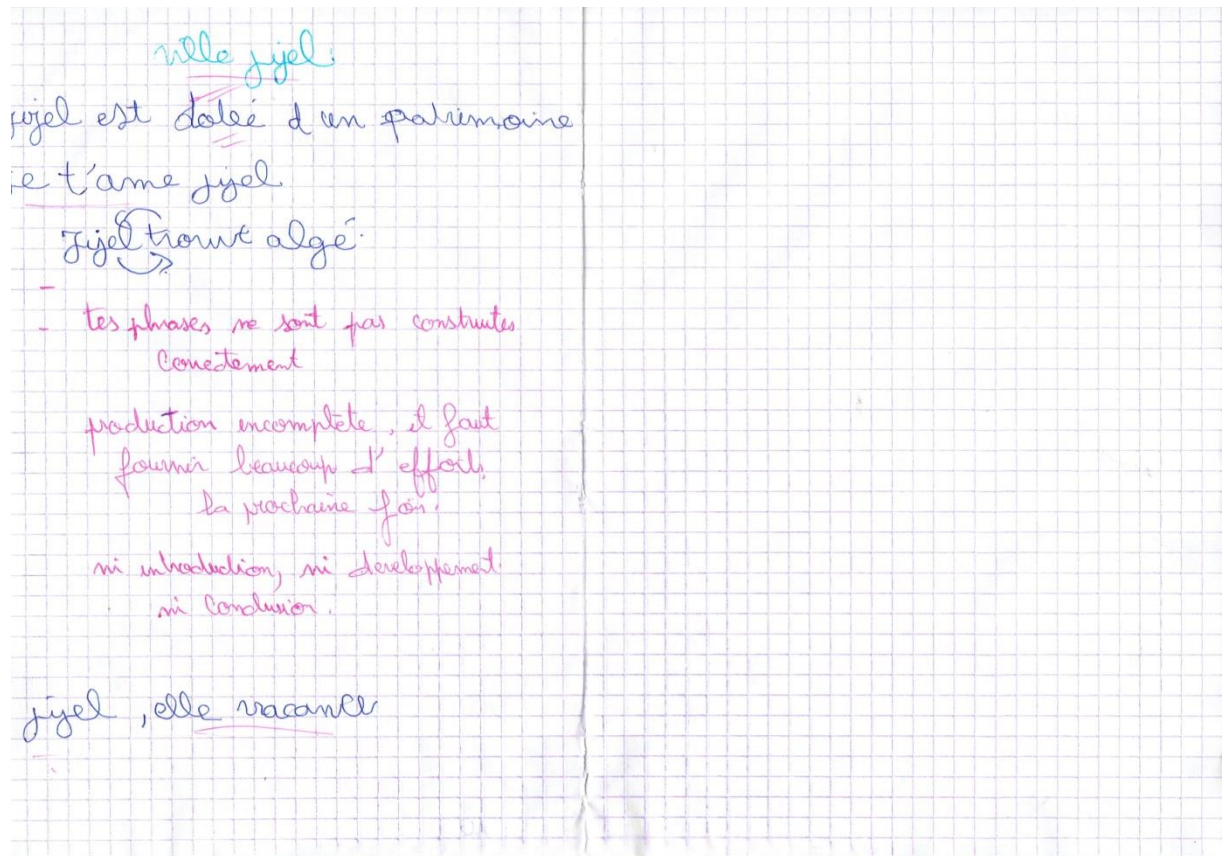 ville jijel.
jijel est dotée d un patrimoine
e t'ame jijel
Jijel trouvt algé.
- tes phrases ne sont pas construites
correctement
production incomplète, il faut
fournir beaucoup d'efforts
la prochaine fois.
ni introduction, ni developpement
ni conclusion.
jijel, elle vacance